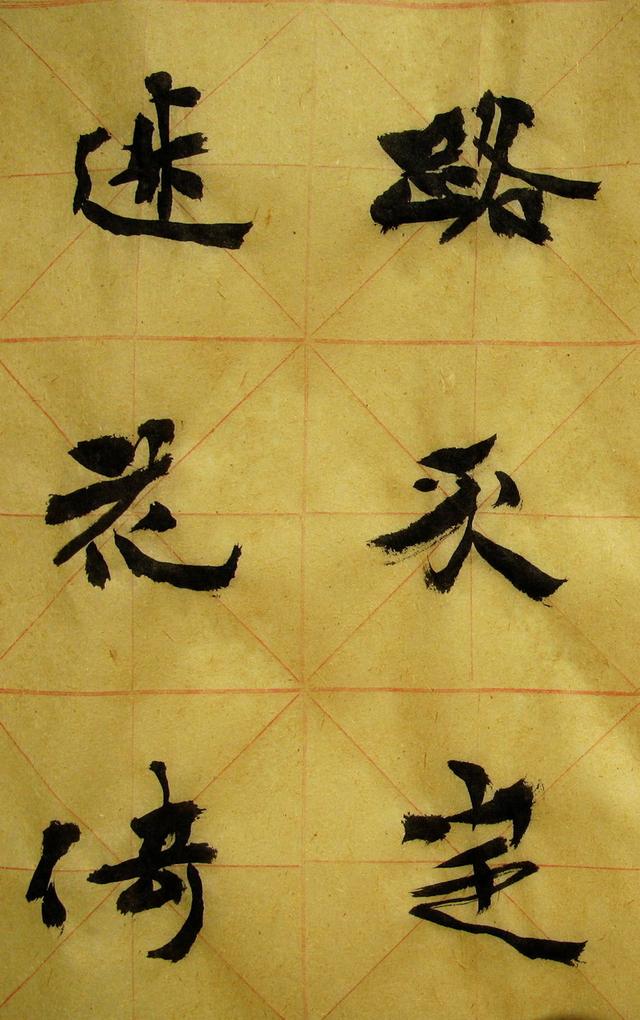 路不定
迷花倚